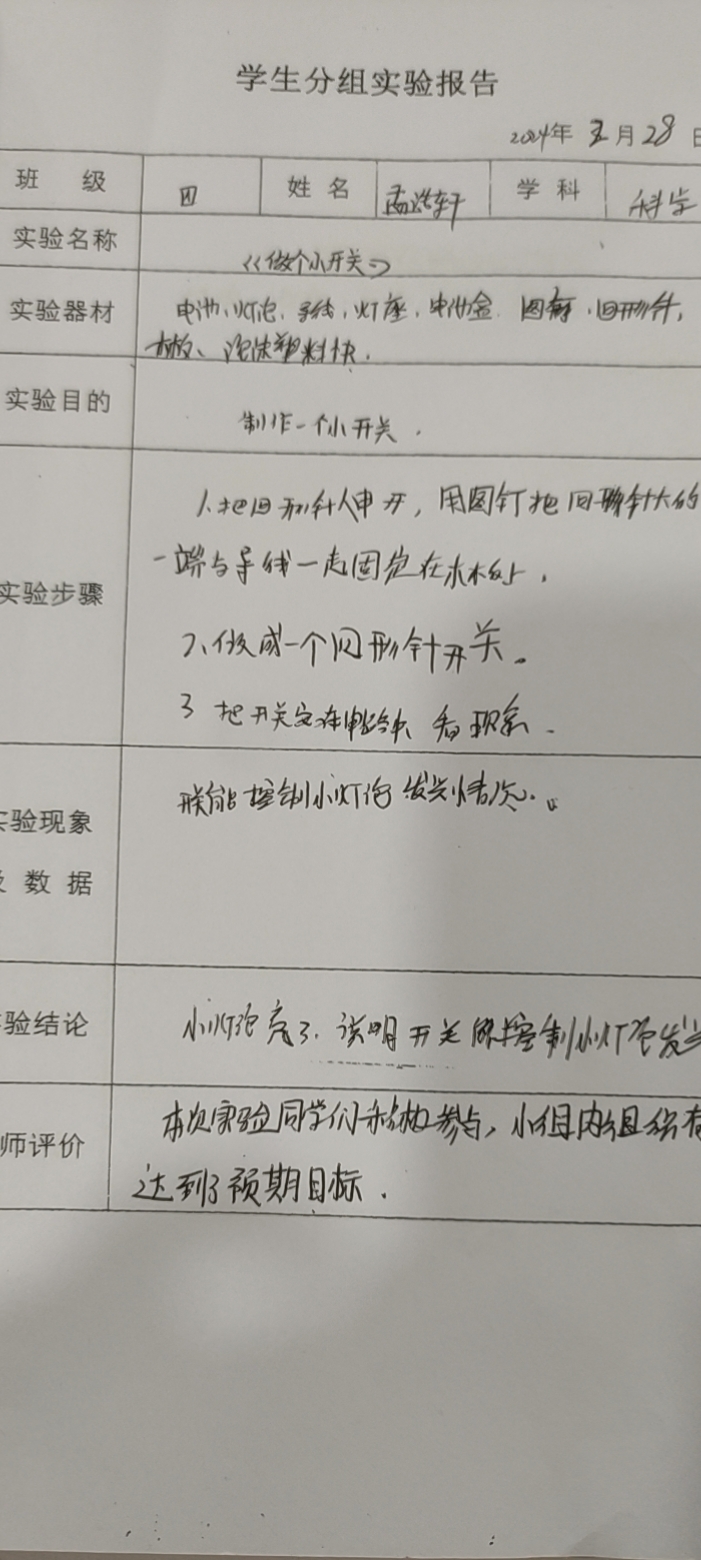 学生分组实验报告
2024年 月28日
班 级 四 姓 名 轩 学 科 科学
实验名称 《做个小开关》
实验器材 电池、灯泡、导线、灯座、电池盒、图钉、回形针、
木板、泡沫塑料块.
实验目的 制作一个小开关.
1、把回形针伸开,用图钉把回形针大的
一端与导线一起固定在木板上.
实验步骤
2、做成一个回形针开关。
3 把开关安在电路中 看现象.
能控制小灯泡发光情况.。
实验现象
数 据
验结论 小灯泡亮了.说明开关能控制小灯泡发光
师评价 本次实验同学们积极参与,小组内组织有
达到了预期目标.